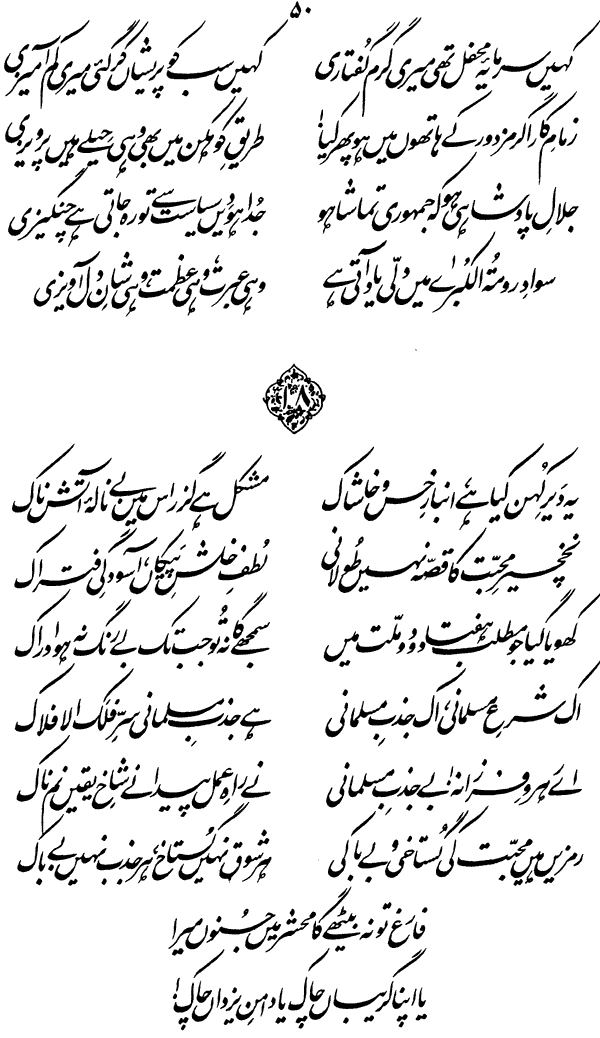 ۵۰
کہیں سرمایۂ محفل تھی میری گرم گفتاری کہیں سب کو پریشاں کر گئی میری کم آمیزی
زمامِ کار اگر مزدور کے ہاتھوں میں ہو پھر کیا! طریقِ کوہکن میں بھی وہی حیلے ہیں پرویزی
جلالِ پادشاہی ہو کہ جمہوری تماشا ہو جُدا ہو دیں سیاست سے تو رہ جاتی ہے چنگیزی
سوادِ رومۃُ الکبریٰ میں دلّی یاد آتی ہے وہی عبرت، وہی عظمت، وہی شانِ دل آویزی
۱۸
یہ دَیرِ کُہن کیا ہے، انبارِ خس و خاشاک مشکل ہے گزر اس میں بے نالۂ آتش ناک
نخچیرِ محبّت کا قصّہ نہیں طُولانی لُطفِ خلشِ پَیکاں، آسودگیِ فتراک
کھویا گیا جو مطلب ہفتاد و دو ملّت میں سمجھے گا نہ تُو جب تک بے رنگ نہ ہو ادراک
اک شرعِ مسلمانی، اک جذبِ مسلمانی ہے جذبِ مسلمانی سِرِّ فلک الافلاک
اے رہروِ فرزانہ! بے جذبِ مسلمانی نے راہِ عمل پیدا نے شاخِ یقیں نم ناک
رمزیں ہیں محبّت کی گُستاخی و بے باکی ہر شوق نہیں گُستاخ، ہر جذب نہیں بے باک
فارغ تو نہ بیٹھے گا محشر میں جُنوں میرا
یا اپنا گریباں چاک یا دامنِ یزداں چاک!